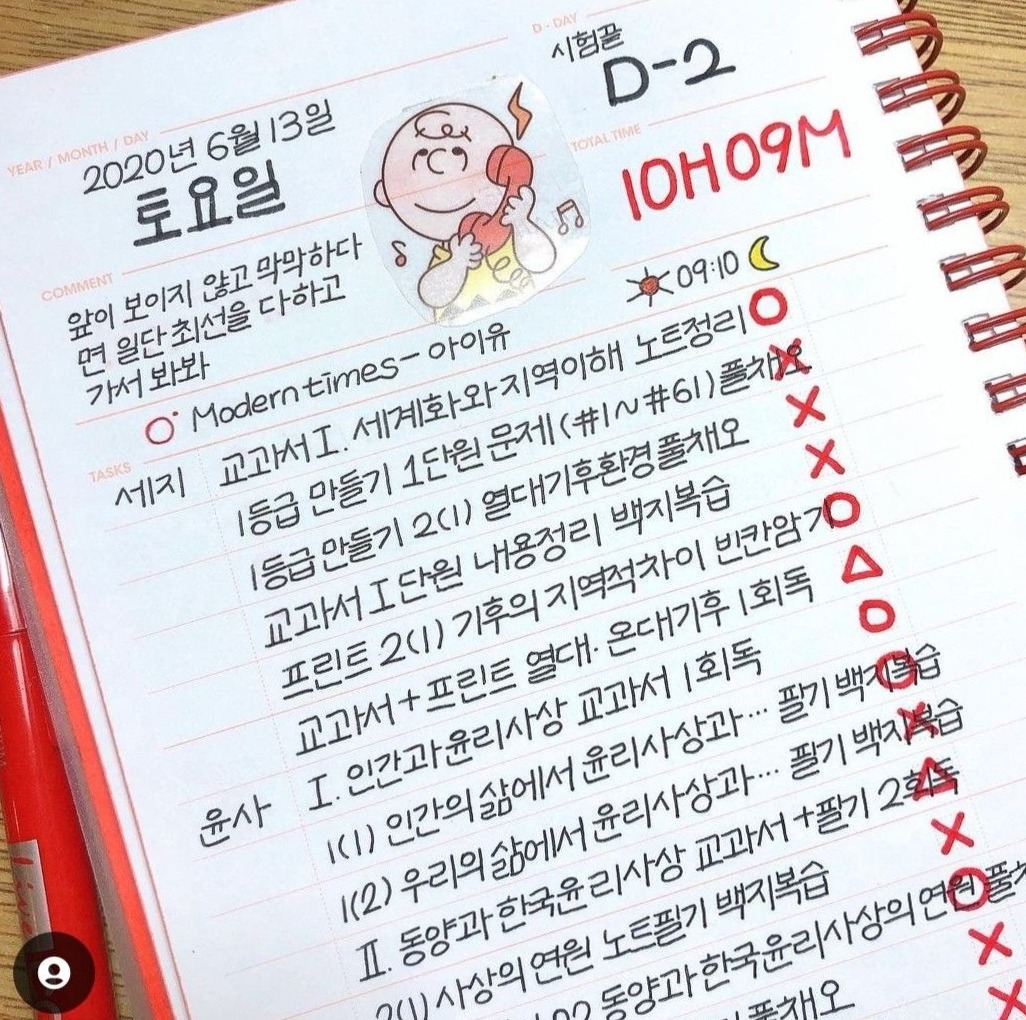 D - DAY
시험끝
D-2
YEAR / MONTH / DAY
2020년 6월 13일
토요일
TOTAL TIME
10H 09M
COMMENT
앞이 보이지 않고 막막하다
면 일단 최선을 다하고
가서 봐봐
09:10
Modern times - 아이유
TASKS
세지 교과서 I. 세계화와 지역이해 노트정리 O
1등급 만들기 1단원 문제 (#1~#61) 풀채오 X
1등급 만들기 2(1) 열대기후환경 풀채오 X
교과서 I 단원 내용정리 백지복습 X
프린트 2(1) 기후의 지역적차이 빈칸암기 O
교과서 + 프린트 열대·온대기후 1회독 △
윤사 I. 인간과 윤리사상 교과서 1회독 O
1(1) 인간의 삶에서 윤리사상과… 필기 백지복습 O
1(2) 우리의 삶에서 윤리사상과… 필기 백지복습 X
II. 동양과 한국윤리사상 교과서 + 필기 2회독 △
2(1) 사상의 연원 노트필기 백지복습 X
동양과 한국윤리사상의 연원 풀채 O
풀채오 X
X